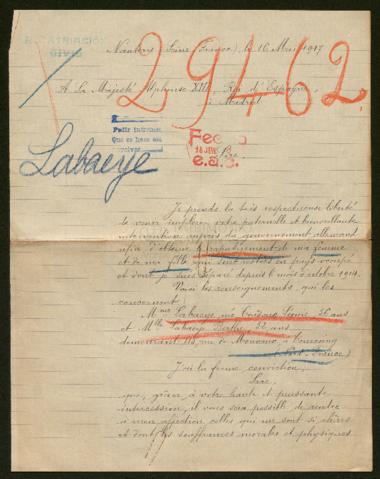 REPATRIACIÓN
CIVIL
Nanterre (Seine) (France), le 16 Mai 1917
A Sa Majesté Alphonse XIII, Roi d'Espagne,
à Madrid
29462
Pedir informes
Que se hace en
Labaeye
Fecha
e.s.s.
Je prends la très respectueuse liberté
de venir implorer votre paternelle et bienveillante
intervention auprès du gouvernement allemand
afin d'obtenir le rapatriement de ma femme
et de ma fille qui sont restées en pays occupé
et dont je suis séparé depuis le mois d'octobre 1914.
Voici les renseignements qui les
concernent:
Mme Labaeye, née
et Mlle Labaeye Berthe, 22 ans
demeurant rue de à Tourcoing
(Nord, France)
J'ai la ferme conviction,
Sire,
que, grâce à votre haute et puissante
intercession, il vous sera possible de rendre
à mon affection celles qui me sont si chères
et dont les souffrances morales et physiques